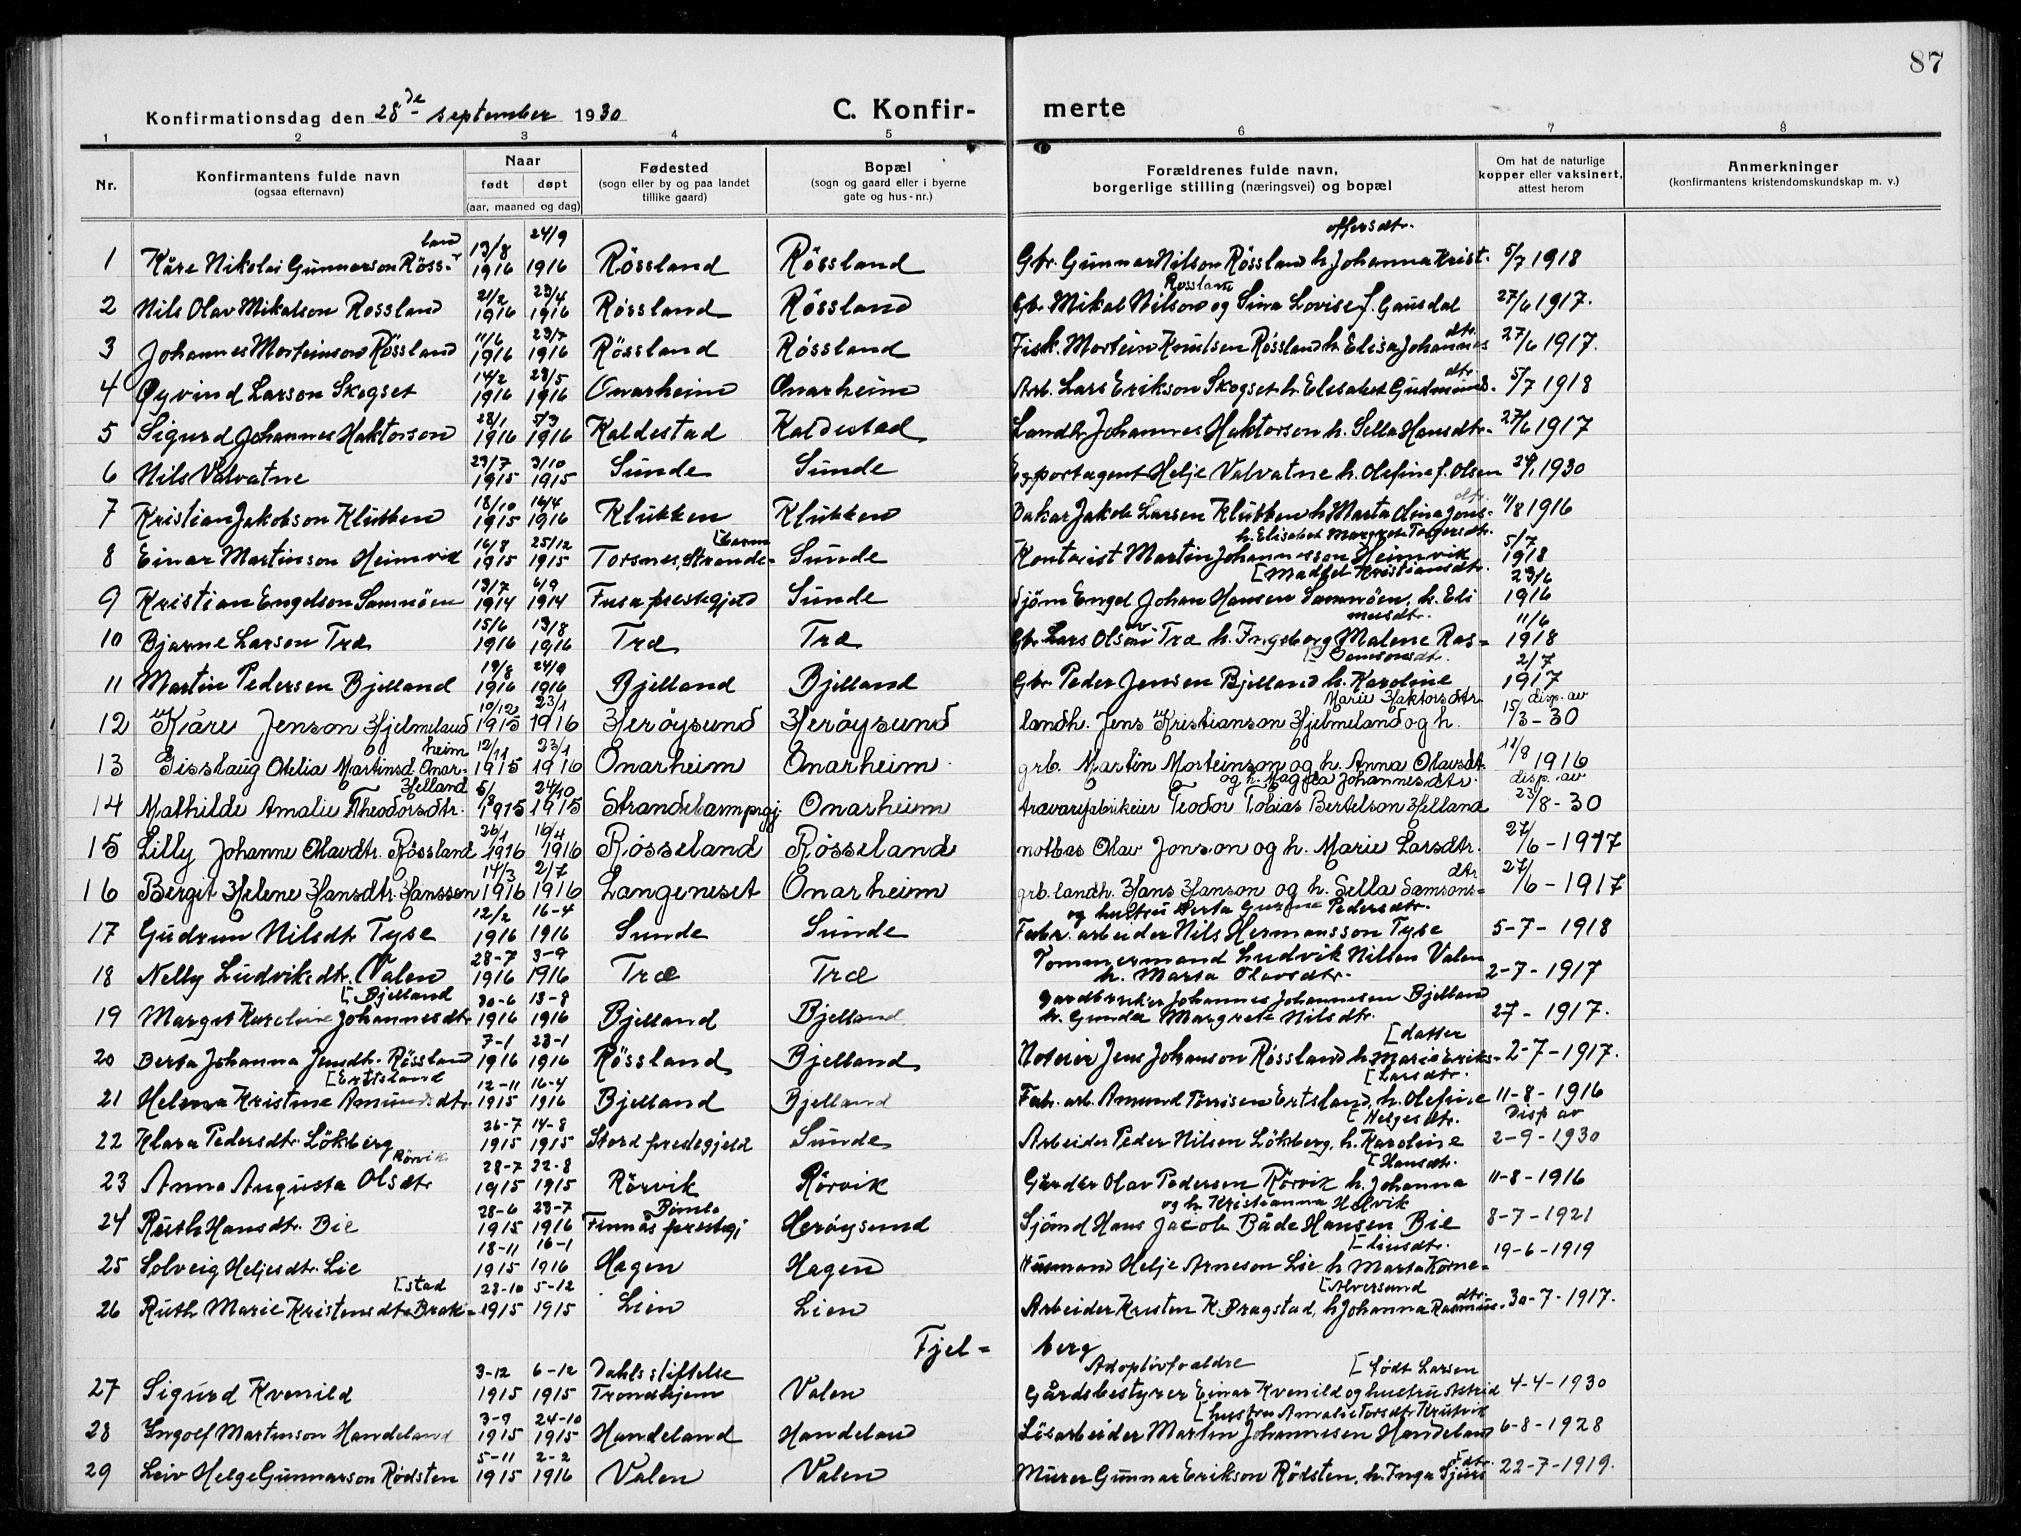 87
Konfirmationsdag den 28de september 1930 C. Konfir- merte
1 2 3 4 5 6 7 8
Nr. Konfirmantens fulde navn (ogsaa efternavn) Naar født døpt (aar, maaned og dag) Fødested (sogn eller by og paa landet tillike gaard) Bopæl (sogn og gaard eller i byerne gate og hus-nr.) Forældrenes fulde navn, borgerlige stilling (næringsvei) og bopæl Om hat de naturlige kopper eller vaksinert, attest herom Anmerkninger (konfirmantens kristendomskundskap m. v.)
1 Kåre Nikolai Gunnarson Röss-land 13/8 1916 24/9 1916 Rössland Rössland Gbr. Gunnar Nilson Rössland h. Johanna Krist-offersdtr. 5/7 1918
2 Nils Olav Mikalson Rossland 21/2 1916 23/4 1916 Røssland Røssland Gbr. Mikal Nilson Rossland og Sina Lovise f. Gausdal 27/6 1917.
3 Johannes Morteinson Røssland 11/6 1916 23/7 1916 Røssland Røssland Fisk. Mortein Knutsen Røssland h. Elisa Johannes dtr. 27/6 1917.
4 Øyvind Larson Skogset 14/2 1916 28/5 1916 Onarheim Onarheim Arb. Lars Erikson Skogset h. Elisabet Gudmunds. dtr. 5/7 1918
5 Sigurd Johannes Haktorson 28/1 1916 5/3 1916 Kaldestad Kaldestad Landh. Johannes Haktorson h. Sella Hansdtr. 27/6 1917
6 Nils Valvatne 29/7 1915 3/10 1915 Sunde Sunde Exportagent Helje Valvatne h. Olefine f. Olsen 24/1 1930
7 Kristian Jakobson Klubben 18/10 1915 16/4 1916 Klubben Klubben Bakar Jakob Larsen Klubben h. Marta Olina Jons- dtr. 11/8 1916
8 Einar Martinson Heimvik 16/8 1915 25/12 1915 Torsnes, Strande-[barm Sunde Kontorist Martin Johannesson Heimvik h. Elisabet Margrete Torgersdtr. 5/7 1918
9 Kristian Engelson Samnöen 13/7 1914 6/9 1914 Fusa prestegjeld Sunde Sjöm. Engel Johan Hansen Samnöen, h. Eli [Madfel Kristiansdtr. 23/6 1916
10 Bjarne Larson Træ 15/6 1916 13/8 1916 Træ Træ Gbr. Lars Olson Træ h. Ingeborg Malene Ras-musdtr. 11/6 1918
11 Martin Pedersen Bjelland 19/8 1916 24/9 1916 Bjelland Bjelland Gbr. Peder Jensen Bjelland h. Karoline [Samsonsdt. 2/7 1917
12 Kåre Jenson Hjelmeland 10/12 1915 23/1 1916 Herøysund Herøysund landh. Jens Kristianson Hjelmeland og h. Marie Haktorsdtr. disp. av 15/3-30
13 Gisslaug Otelia Martinsd. Onar-heim 12/11 1915 23/1 1916 Onarheim Onarheim grb. Martin Morteinson og h. Anna Olavsdt. 11/8 1916
14 Mathilde Amalie Theodorsdtr. Helland 5/8 1915 24/10 1915 Strandebarm prgj. Onarheim trævarefabrikeier Teodor Tobias Bertelson Helland og h. Magda Johannesdtr. disp. av 23/8-30
15 Lilly Johanne Olavdtr. Røssland 26/1 1916 16/4 1916 Rosseland Rosseland notbas Olav Jonson og h. Marie Larsdtr. 27/6-1917
16 Bergit Helene Hansdtr. Hansson 14/3 1916 2/7 1916 Langeneset Onarheim grb. landh. Hans Hanson og h. Sella Samsons- dtr 27/6-1917
17 Gudrun Nilsdtr Tyse 12/2 1916 16-4 1916 Sunde Sunde Fabr. arbeider Nils Hermansson Tyse og hustru Berta Gurine Pedersdtr. 5-7-1918
18 Nelly Ludviksdtr. Valen 28-7 1916 3-9 1916 Træ Træ Tommermand Ludvik Nilsen Valen h. Marta Olavsdtr. 2-7-1917
19 Margit Karoline Johannesdtr [Bjelland 30-6 1916 13-8 1916 Bjelland Bjelland Gardbruker Johannes Johannesen Bjelland h. Gunda Margrete Nilsdtr. 27-1917.
20 Berta Johanna Jensdtr. Røssland 7-1 1916 23-1 1916 Røssland Bjelland Noteier Jens Johanson Røssland h. Marie Eriks- [datter 2-7-1917.
21 Helena Kristine Amundsdtr [Ertsland 12-11 1915 16-4 1916 Bjelland Bjelland Fabr. arb. Amund Torrisen Ertsland, h. Olefine [Larsdtr. 11-8-1916
22 Klara Pedersdtr. Lökberg 26-7 1915 14-8 1915 Stord prestegjeld Sunde Arbeider Peder Nilsen Lökberg, h. Karoline [Helgesdtr. Disp av 2-9-1930
23 Anna Augusta Olsdtr Rörvik 28-7 1915 22-8 1915 Rörvik Rörvik Gårdbr Olav Pedersen Rörvik h. Johanna [Hansdtr. 11-8-1916
24 Ruth Hansdtr. Bie 28-6 1915 23-7 1916 Bömlo Finnås prestegj Herøysund Sjömd Hans Jacob Både Hansen Bie og h. Kristianna 8-7-1921
25 Solveig Heljesdtr. Lie 18-11 1915 16-1 1916 Hagen Hagen Husmand Helje Arneson Lie h. Marta Korne- [liusdtr. 19-6-1919
26 Ruth Marie Kristensdtr Brak-[stad 28-10 1915 5-12 1915 Lien Lien Arbeider Kristen K. Bragstad, h. Johanna Rasmus- dtr. [Alversund 30-7-1917.
Fjel- berg
27 Sigurd Kvenild 3-12 1915 6-12 1915 Dahls stiftelse Trondhjem Valen Adoptivforældre Gårdsbestyrer Einar Kvenild og hustru Astrid [født Larsen 4-4-1930
28 Ingolf Martinson Handeland 3-9 1915 24-10 1915 Handeland Handeland Lösarbeider Martin Johannesen Handeland [hustru Amalie Torsdtr 6-8-1928
29 Leiv Helge Gunnarson Rødsten 5-11 1915 2-2 1916 Valen Valen Murer Gunnar Erikson Rødsten, h. Inga Sjurs dtr. 22-7-1919.